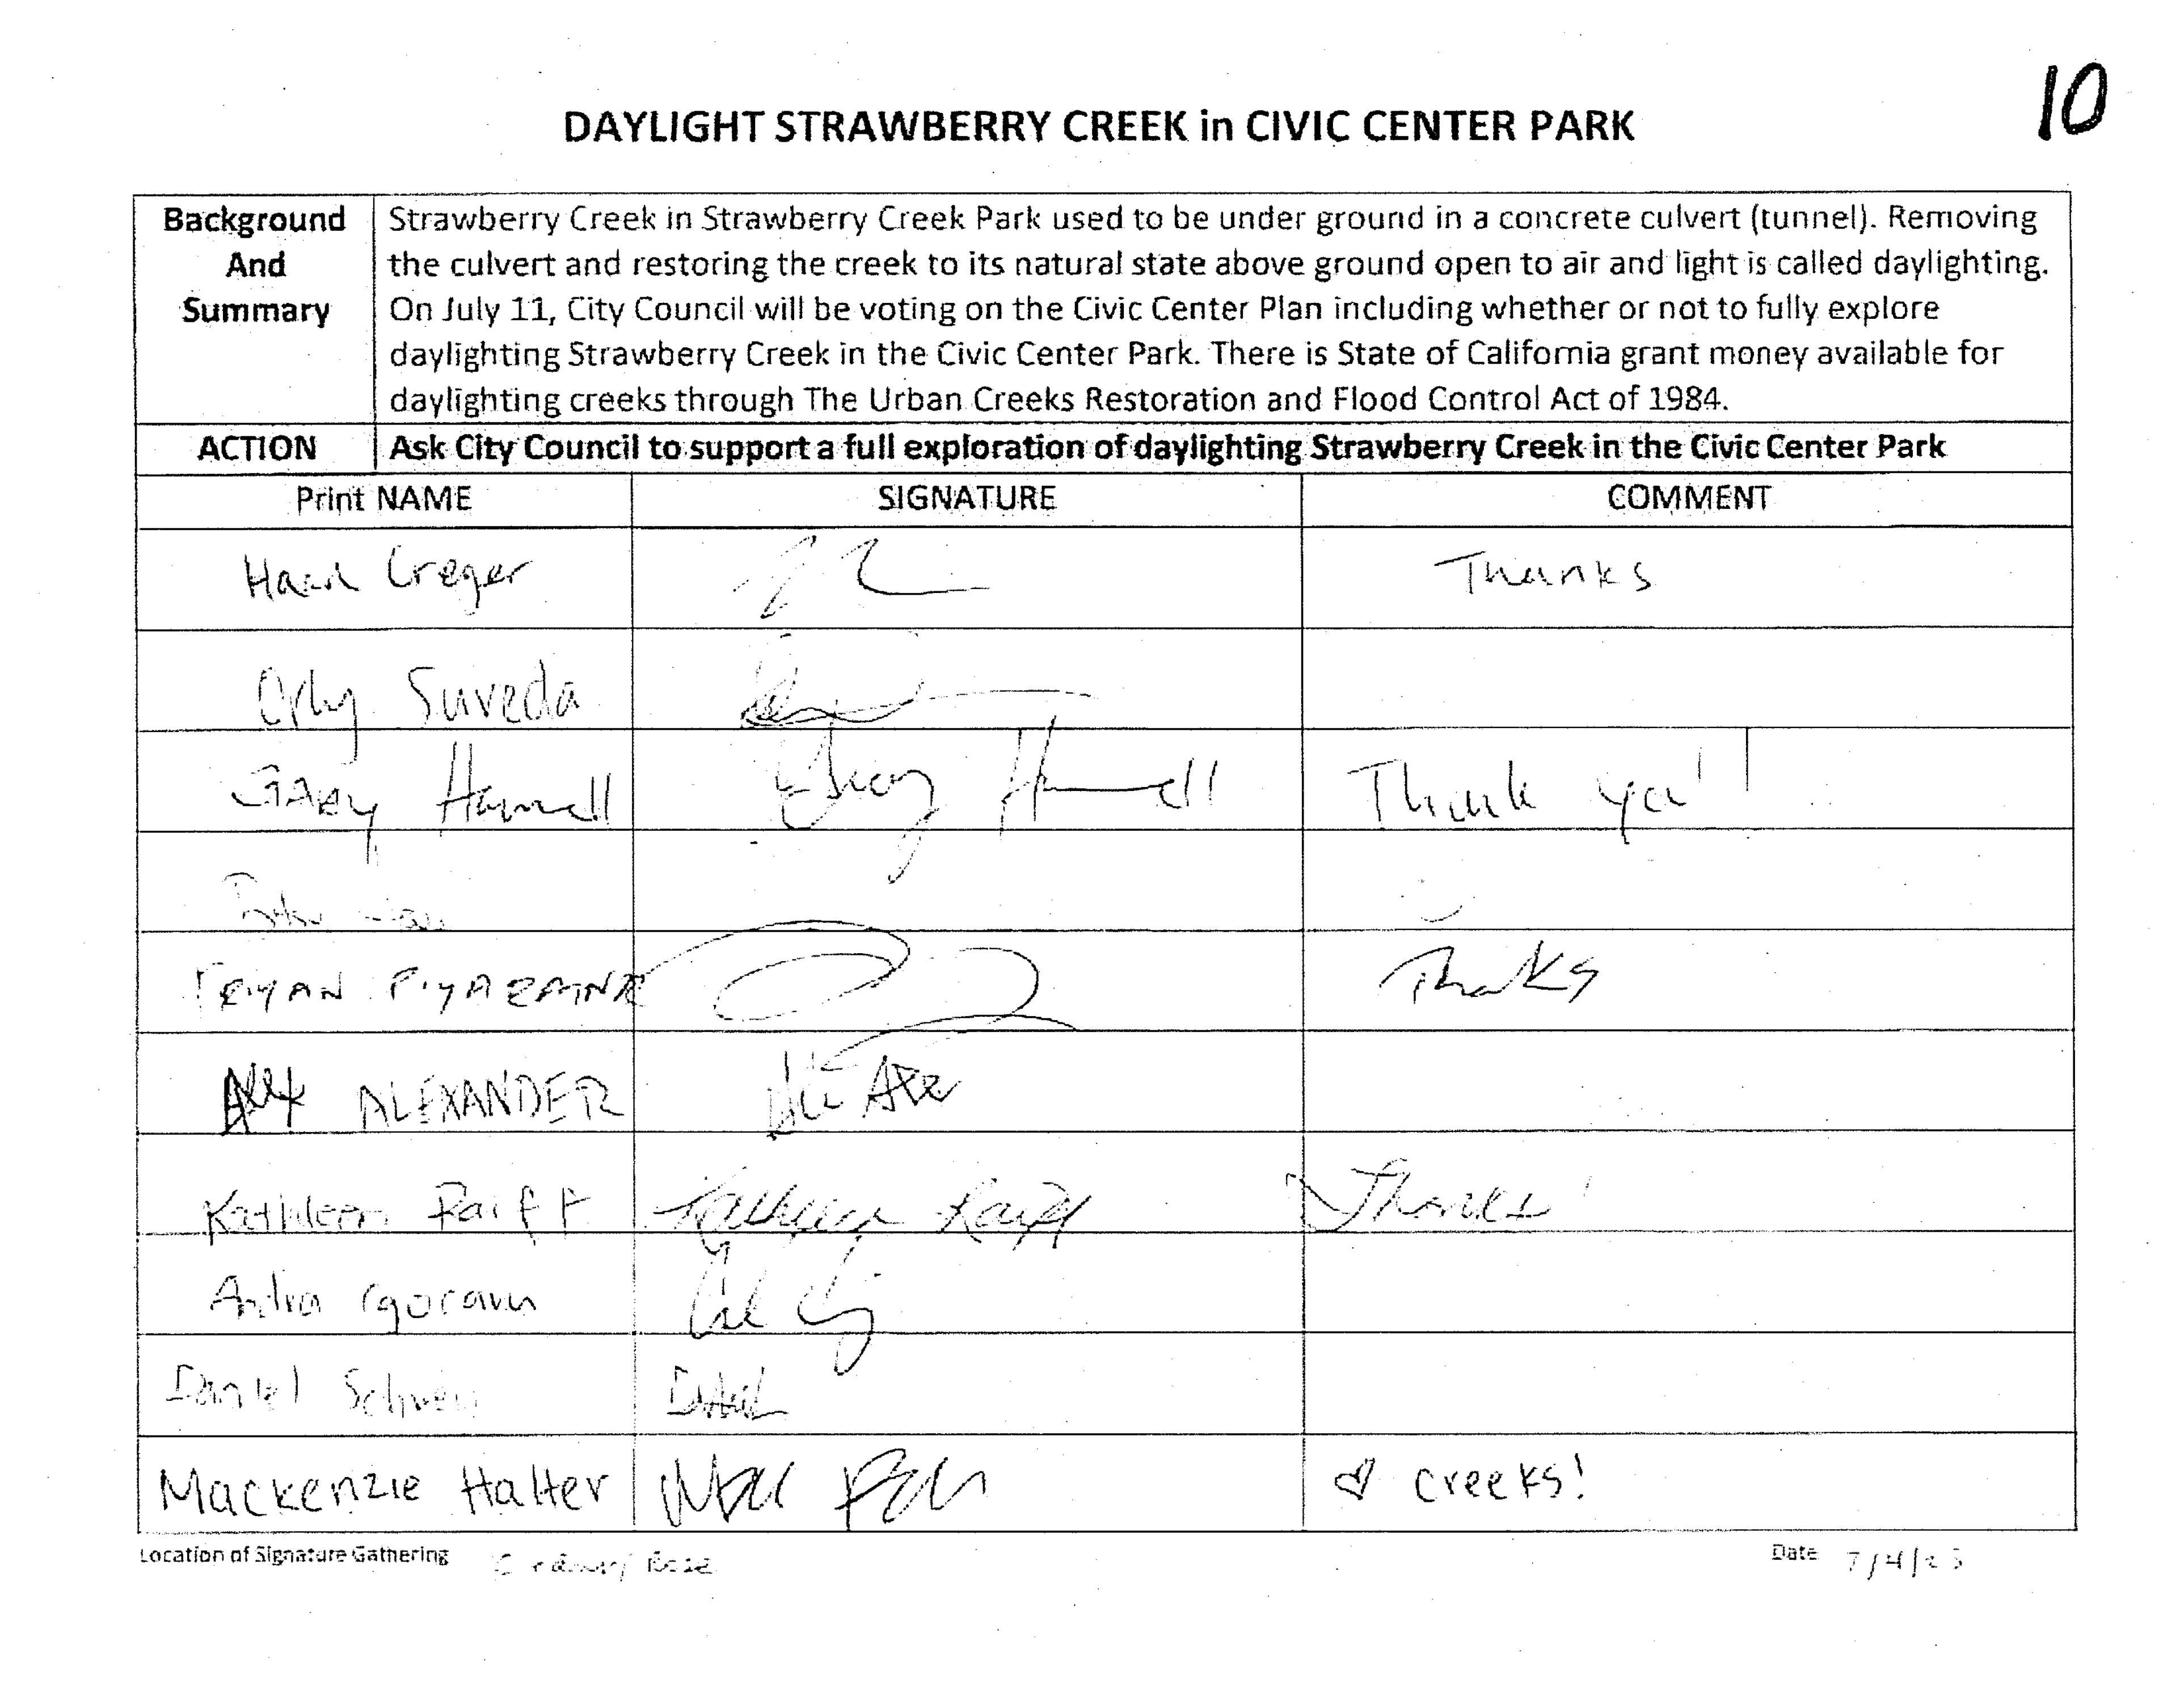 10
DAYLIGHT STRAWBERRY CREEK in CIVIC CENTER PARK
Background And Summary
Strawberry Creek in Strawberry Creek Park used to be under ground in a concrete culvert (tunnel). Removing
the culvert and restoring the creek to its natural state above ground open to air and light is called daylighting.
On July 11, City Council will be voting on the Civic Center Plan including whether or not to fully explore
daylighting Strawberry Creek in the Civic Center Park. There is State of California grant money available for
daylighting creeks through The Urban Creeks Restoration and Flood Control Act of 1984.
ACTION Ask City Council to support a full exploration of daylighting Strawberry Creek in the Civic Center Park
Print NAME SIGNATURE COMMENT
Creger Thanks
Orly Suveda
GARY Hamell Gary Hamell Thank you!!
Thanks
Alex ALEXANDER
Kathleen Raifft Kathleen Thanks!
Daniel
Mackenzie Halter ♡ creeks!
Location of Signature Gathering
Date 7/4/23